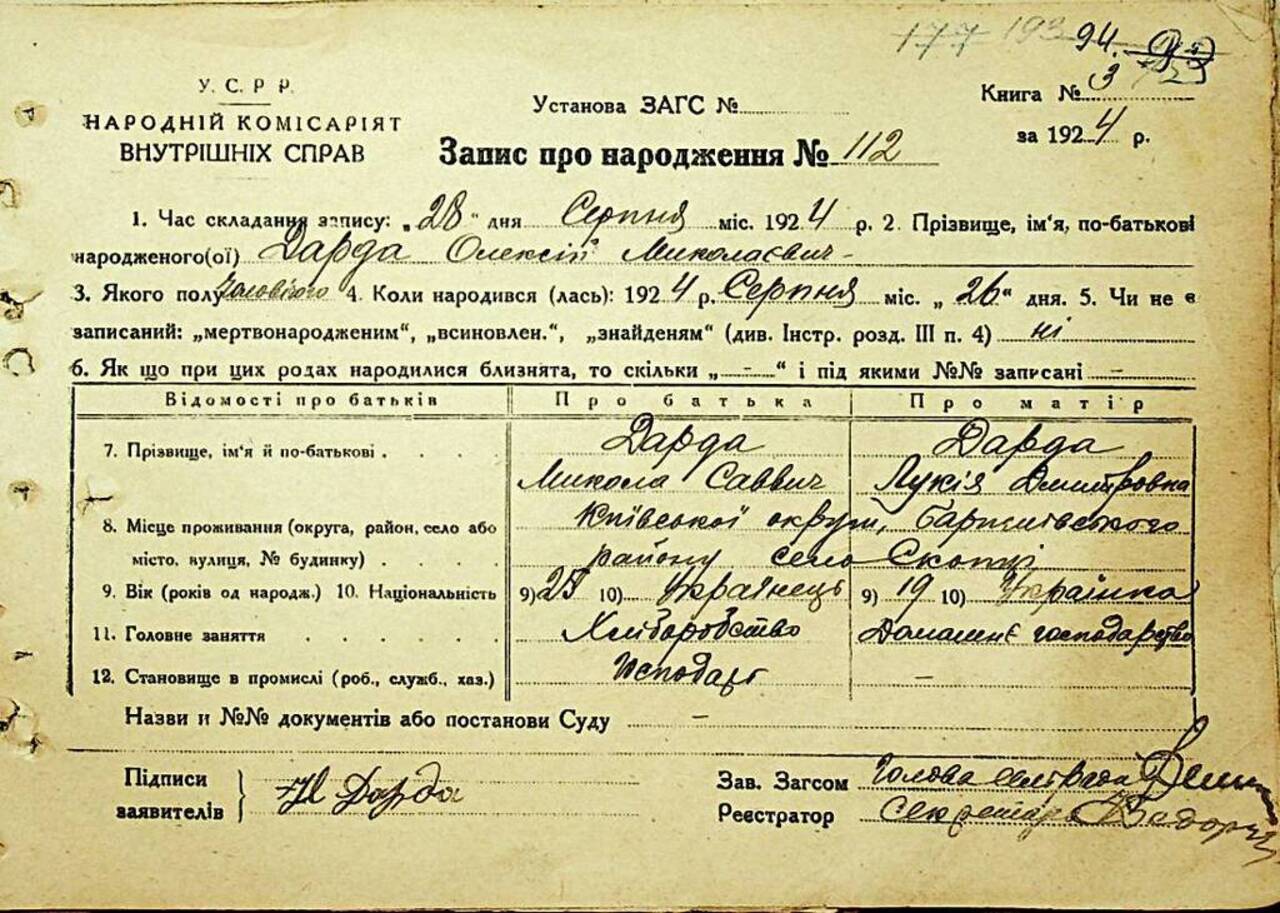 177 193 94.
У. С. Р Р.
НАРОДНІЙ КОМІСАРІЯТ
ВНУТРІШНІХ СПРАВ
Установа ЗАГС №
Книга № 3
за 1924 р.
Запис про народження № 112
1. Час складання запису: „28" дня Серпня міс. 1924 р. 2. Прізвище, ім'я, по-батькові
народженого(ої) Дарда Олексій Миколаєвич-
3. Якого полу чоловічого 4. Коли народився (лась): 1924 р. Серпня міс. „26" дня. 5. Чи не є
записаний: „мертвонародженим", „всиновлен.", „знайденям" (див. Інстр. розд. III п. 4) ні
6. Як що при цих родах народилися близнята, то скільки „-" і під якими №№ записані -
Відомості про батьків Про батька Про матір
7. Прізвище, ім'я й по-батькові . . . . Дарда Дарда
Микола Саввич Лукія Дмитровка
8. Місце проживання (округа, район, село або Київської округи,
місто, вулиця, № будинку) . . . . району село
9. Вік (років од народж.) 10. Національність 9) 25 10) Українець 9) 19 10) Українка
11. Головне заняття . . . . . . Хліборобство Домашнє господарство
12. Становище в промислі (роб., служб., хаз.) Господарь -
Назви и №№ документів або постанови Суду -
Підписи
заявителів } Н Дарда
Зав. Загсом Голова сельради
Реєстратор Секретарь